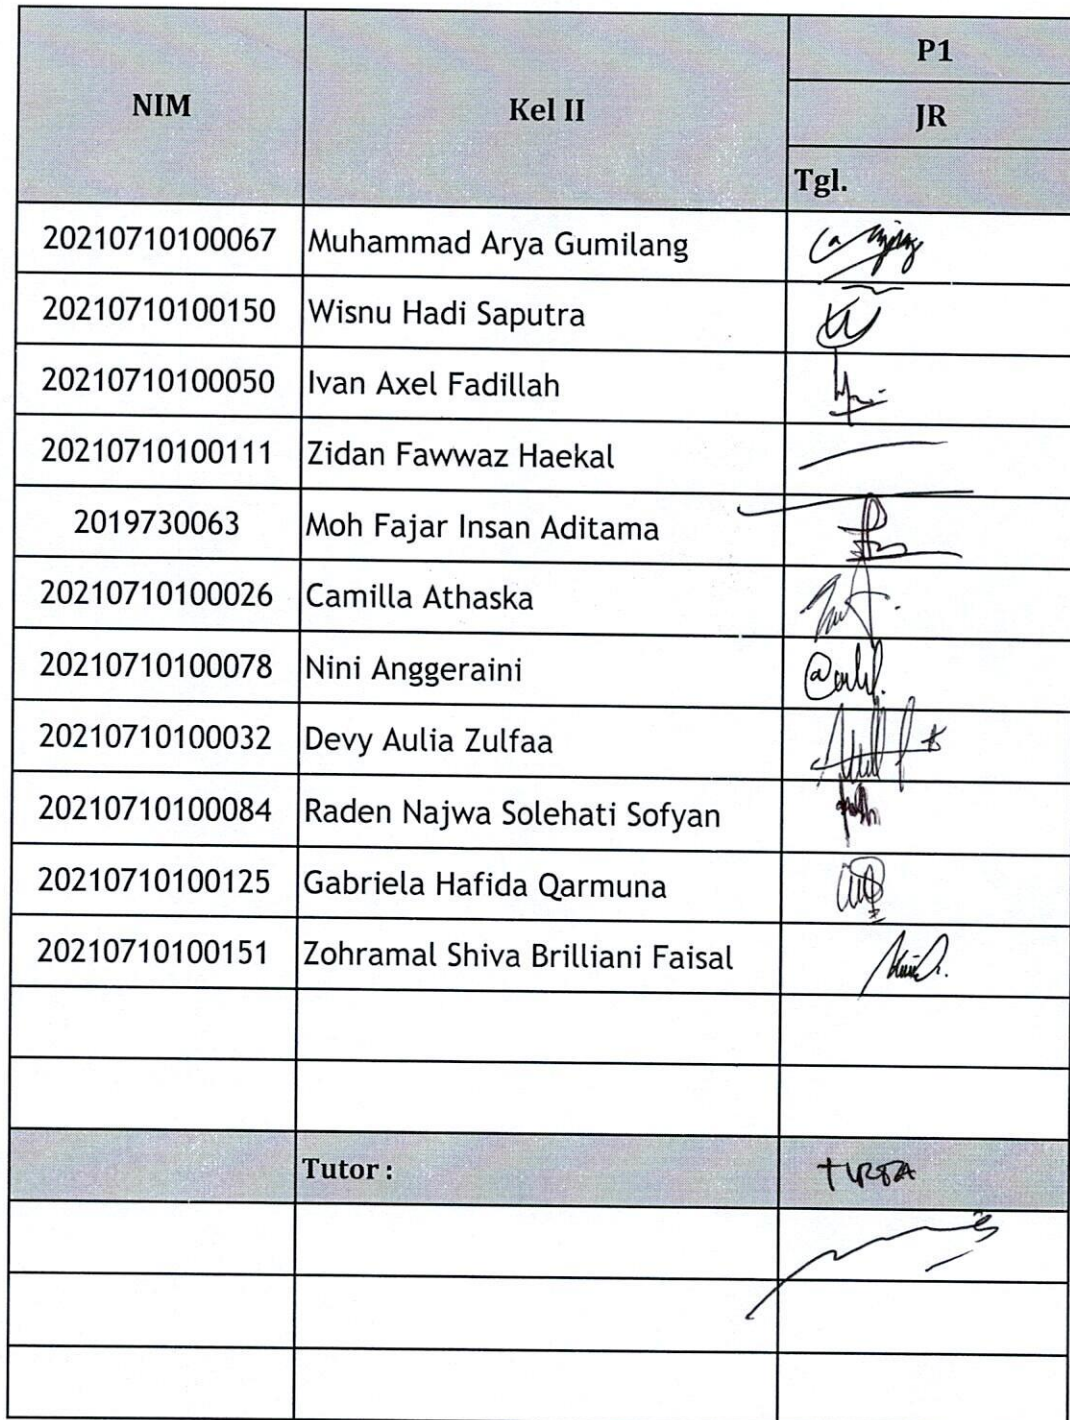 NIM Kel II P1
JR
Tgl.
20210710100067 Muhammad Arya Gumilang
20210710100150 Wisnu Hadi Saputra
20210710100050 Ivan Axel Fadillah
20210710100111 Zidan Fawwaz Haekal
2019730063 Moh Fajar Insan Aditama
20210710100026 Camilla Athaska
20210710100078 Nini Anggeraini
20210710100032 Devy Aulia Zulfaa
20210710100084 Raden Najwa Solehati Sofyan
20210710100125 Gabriela Hafida Qarmuna
20210710100151 Zohramal Shiva Brilliani Faisal
Tutor :